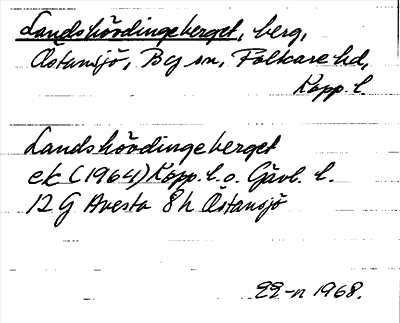 Landshövdingeberget, berg,
Östansjö, By sn, Folkare hd,
Kopp. l.
Landshövdingeberget
ek (1964) Kopp. l. o. Gävl. l.
12 G Avesta 8h Östansjö
1968.